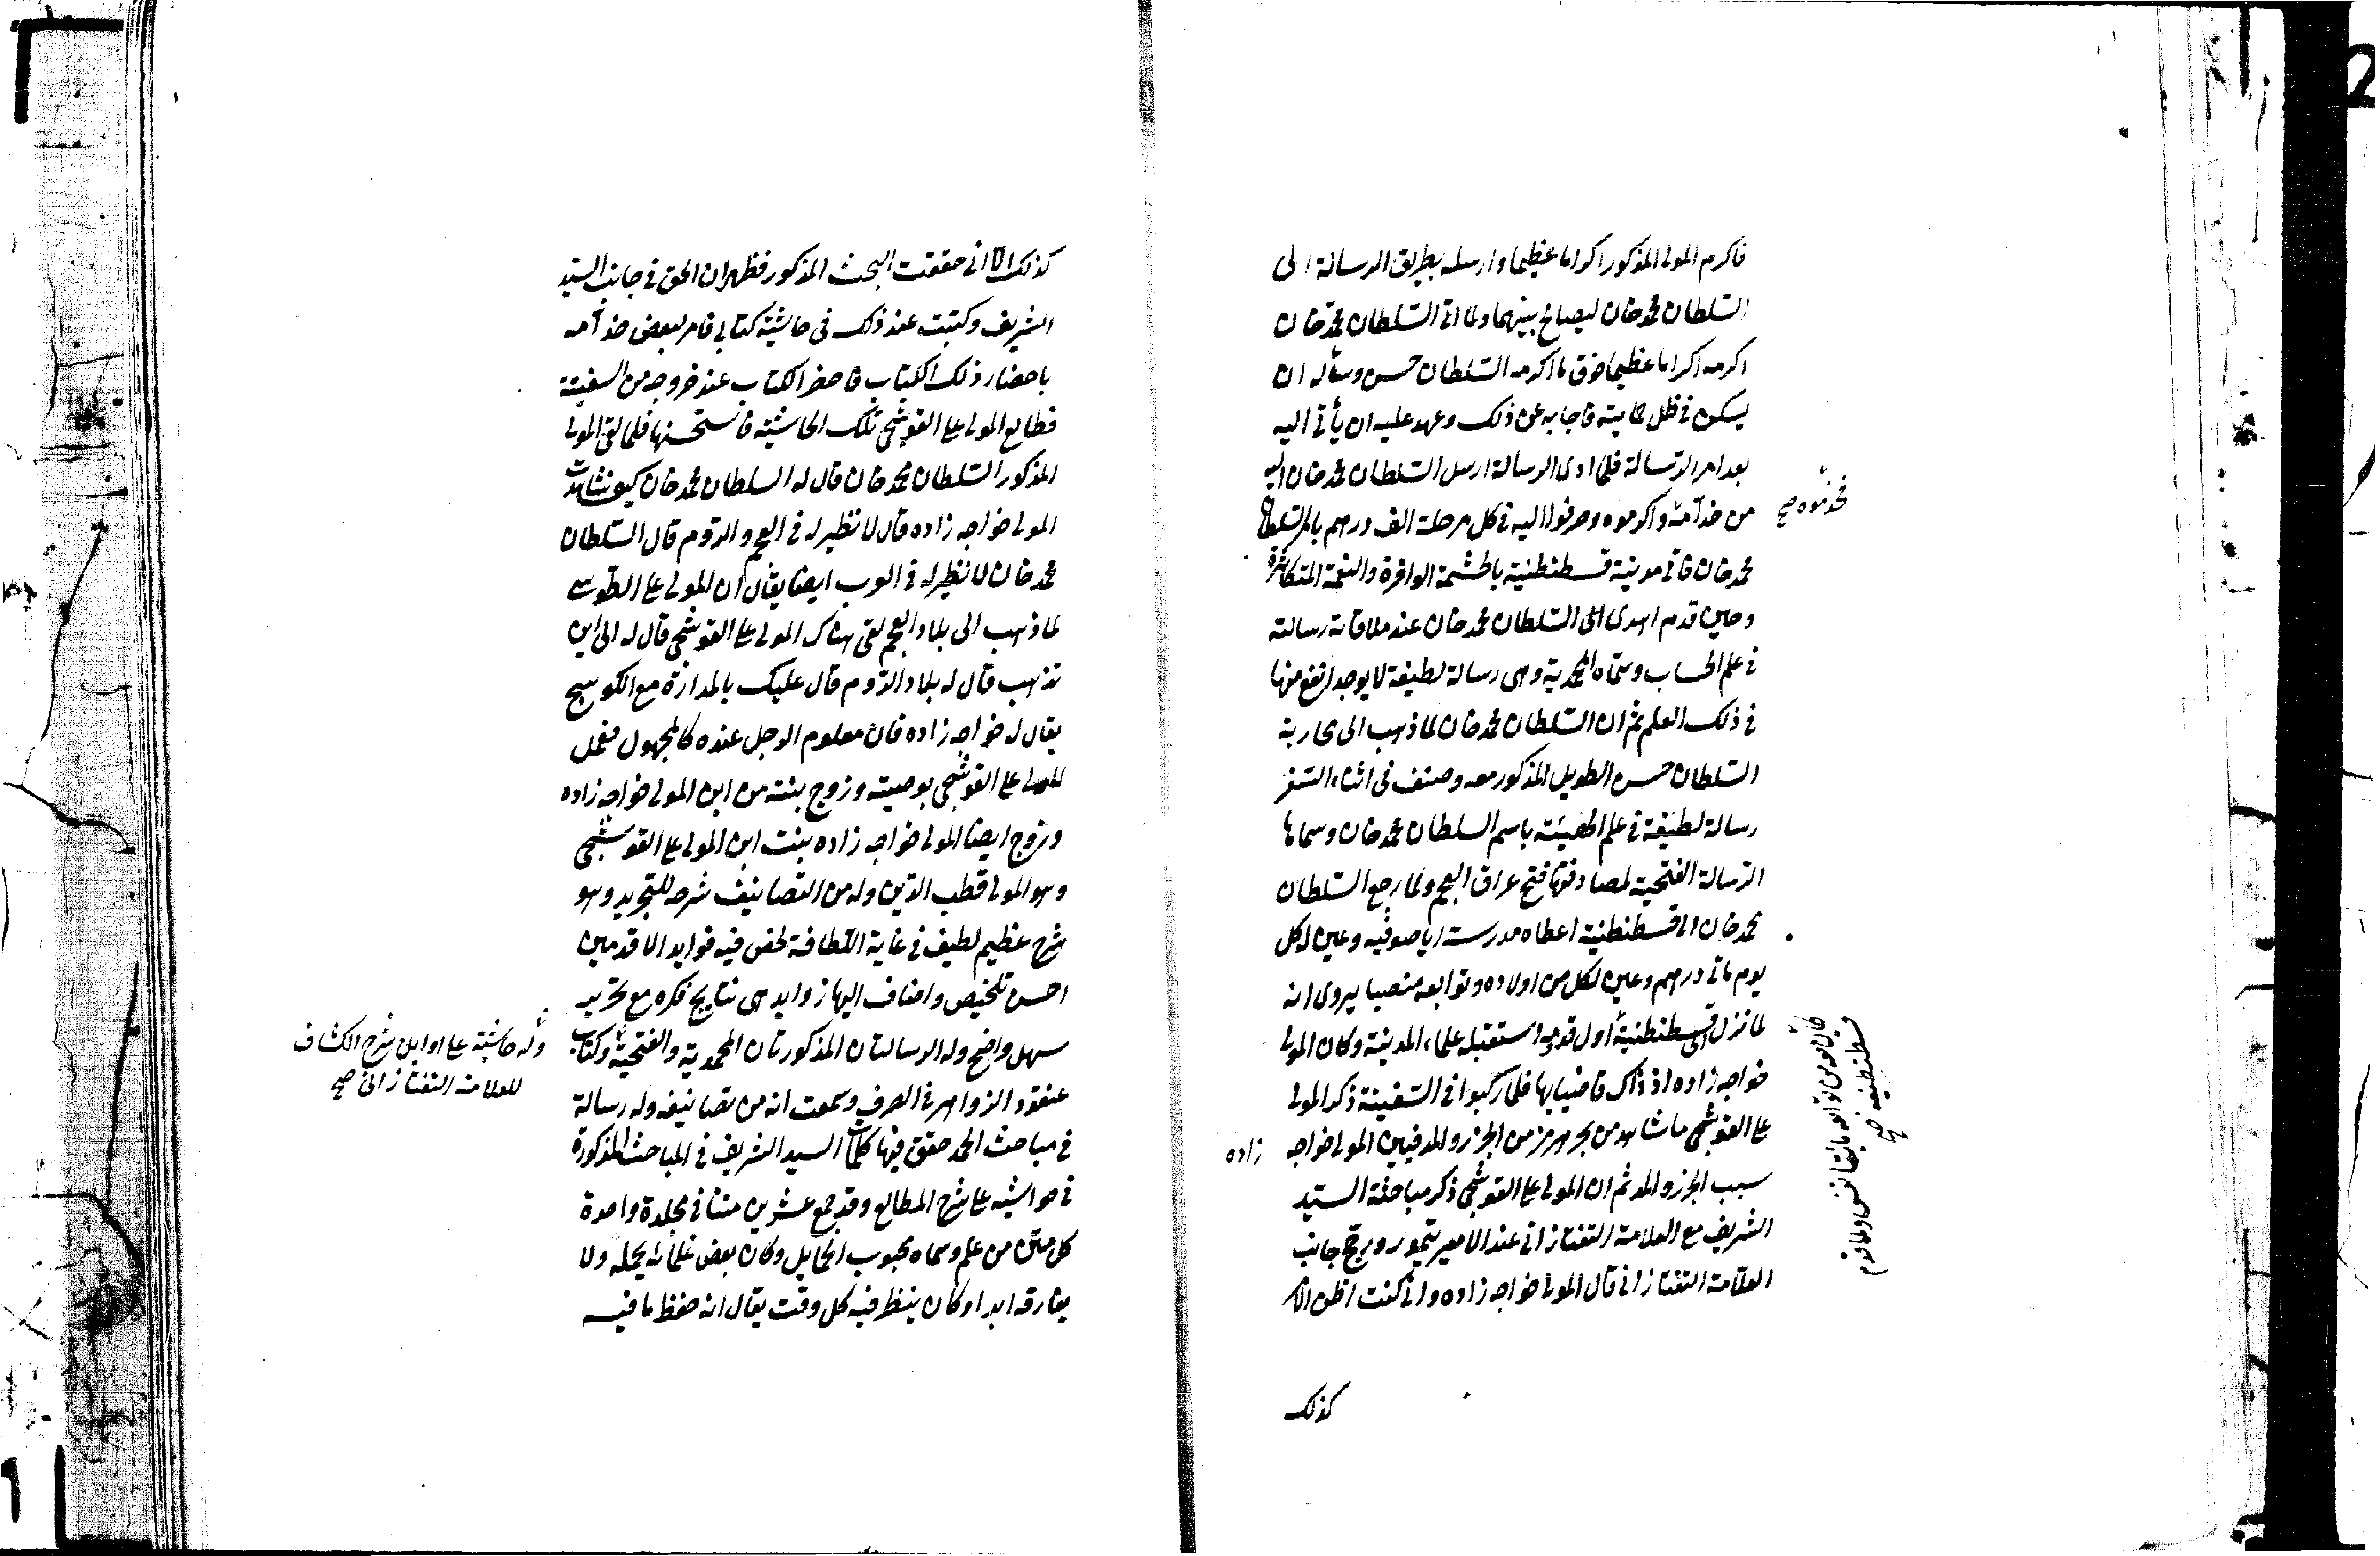 فاكرم المولى المذكور اكراما عظيما وارسله بطريق الرسالة الى
السلطان محمد خان ليصالح بينهما ولما اتى السلطان محمد خان
اكرمه اكراما عظيما فوق ما اكرمه السلطان حسن وسأله ان
يسكن في ظل حمايته فاجابه عن ذلك وعهد عليه ان يأتي اليه
بعد امر الرسالة فلما ادى الرسالة ارسل السلطان محمد خان اليه
من خدامه واكرموه وصرفوا اليه في كل مرحلة الف درهم بامر السلطان
فخدموه صح
محمد خان فاتى مدينة قسطنطنية بالحشمة الوافرة والنعمة المتكاثرة
وحين قدم اهدى الى السلطان محمد خان عند ملاقاته رسالته
في علم الحساب وسماه المحمدية وهي رسالة لطيفة لا يوجد انفع منها
في ذلك العلم ثم ان السلطان محمد خان لما ذهب الى محاربة
السلطان حسن الطويل المذكور معه وصنف في اثناء السفر
رسالة لطيفة في علم الهيئة باسم السلطان محمد خان وسماها
الرسالة الفتحية لمصادفتها فتح عراق العجم ولما رجع السلطان
محمد خان الى قسطنطنية اعطاه مدرسة ايا صوفيه وعين لكل
يوم مائتي درهم وعين لكل من اولاده وتوابعه منصبا يروى انه
لما نزل الى قسطنطنية اول قدومه استقبله علماء المدينة وكان المولى
خواجه زاده اذ ذاك قاضيا بها فلما ركبوا في السفينة ذكر المولى
على القوشجي ما شاهد من بحر هرمز من الجزر والمد فبين المولى خواجه زاده
سبب الجزر والمد ثم ان المولى على القوشجي ذكر مباحثة السيد
الشريف مع العلامة التفتازاني عند الامير تيمور ورجح جانب
العلامة التفتازاني قال المولى خواجه زاده واني كنت اظن الامر
كان معه من توابعه مائتا نفس ولما قدم
قسطنطنية صح
كذلك
كذلك الا اني حققت البحث المذكور فظهر ان الحق في جانب السيد
الشريف وكتبت عند ذلك في حاشية كتابي فامر لبعض خدامه
باحضار ذلك الكتاب فاحضر الكتاب عند خروجه من السفينة
فطالع المولى على القوشجي تلك الحاشية فاستحسنها فلما لقي المولى
المذكور السلطان محمد خان قال له السلطان محمد خان كيف شاهدت
المولى خواجه زاده قال لا نظير له في العجم والروم قال السلطان
محمد خان لا نظير له في العرب ايضا يقال ان المولى على الطوسي
لما ذهب الى بلاد العجم لقي هناك المولى على القوشجي قال له الى اين
تذهب قال له بلاد الروم قال عليك بالمدارة مع الكوسج
يقال له خواجه زاده فان معلوم الرجل عنده كالمجهول فعمل
المولى على القوشجي بوصيته وزوج بنته من ابن المولى خواجه زاده
وزوج ايضا المولى خواجه زاده بنت ابن المولى على القوشجي
وهو المولى قطب الدين وله من التصانيف شرحه للتجريد وهو
شرح عظيم لطيف في غاية اللطافة لخص فيه فوايد الاقدمين
احسن تلخيص واضاف اليها زوايد هي نتايج فكره مع تحرير
سهل واضح وله الرسالتان المذكورتان المحمدية والفتحية وكتاب
وله حاشية على اوايل شرح الكشاف
للعلامة التفتازاني صح
عنقود الزواهر في الصرف وسمعت انه من تصانيفه وله رسالة
في مباحث الحمد حقق فيها كلمات السيد الشريف في المباحث المذكورة
في حواشيه على شرح المطالع وقد جمع عشرين متنا في مجلدة واحدة
كل متن من علم وسماه محبوب الحمايل وكان بعض غلمانه يحمله ولا
يفارقه ابدا وكان ينظر فيه كل وقت يقال انه حفظ ما فيه